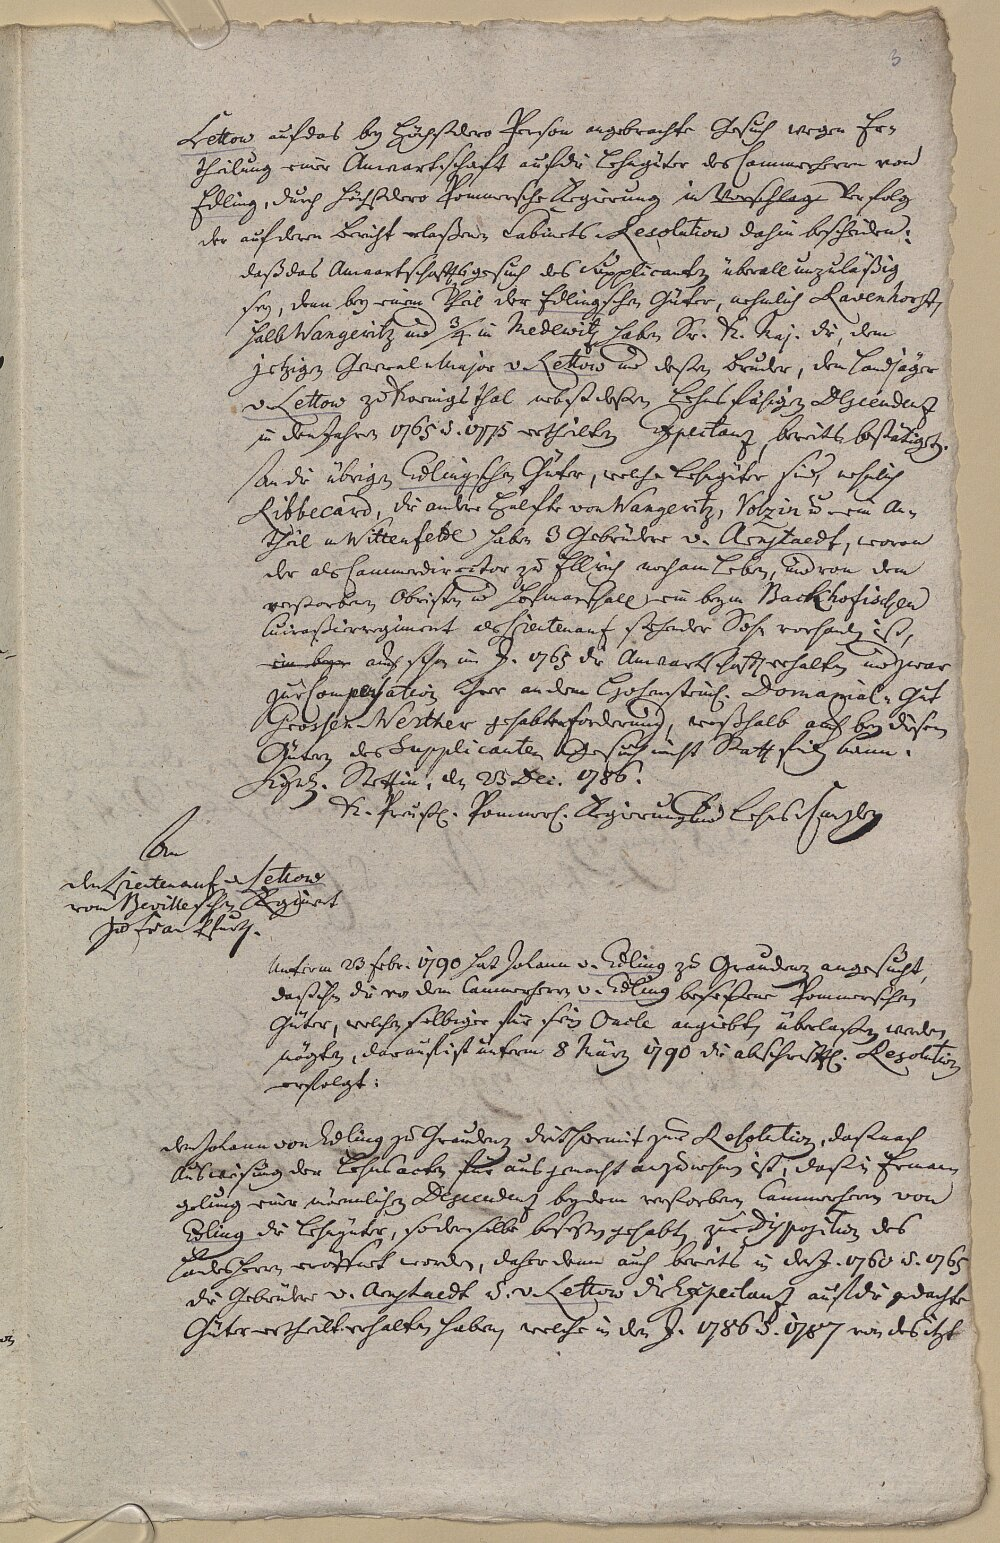 3
Lettow auf das bey Höchstdero Person angebrachte Gesuch wegen Er-
theilung einer Anwartschaft auf die Lehngüter des Cammerherrn von
Edling, durch Höchstdero Pommersche Regierung in Vorschlag Verfolg
der auf deren Bericht erlaßenen Cabinets-Resolution dahin beschieden:
daß das Anwartschaftsgesuch des Supplicanten überall unzuläßig
sey, denn bey einem Theil der Edlingschen Güter, nehmlich Ravenhorst,
halb Wangeritz und 3/4 in Medewitz haben Sr. K. Maj. die, dem
jetzigen General-Major v. Lettow und deßen Bruder, dem Landjäger
v. Lettow zu Koenigsthal nebst deßen Lehnsfähigen Descendenz
in den Jahren 1765 u. 1775 ertheilten Expectanz bereits bestätiget.
An die übrigen Edlingschen Güter, welche Lehngüter sind, nehmlich
Ribbecard, die andre Hälfte von Wangeritz, Volzin u. ein An-
theil in Wittenfelde haben 3 Gebrüdere v. Arnstaedt, wovon
der als Cammerdirector zu Ellrich noch am Leben, und von dem
verstorbenen Obristen und Hofmarschall ein beym Backhofischen
Cuirassierregiment als Lieutenant stehender Sohn vorhanden ist,
auch schon im J. 1765 die Anwartschaft erhalten und zwar
zur Compensation ihrer an dem Hohenstein. Domanial-Gut
Grossen-Werther gehabten Forderung, weshalb auch bey diesen
Gütern des Supplicanten Gesuch nicht Statt finden kann.
Signt. Stettin, den 23 Dec. 1786.
K. Preuß. Pommersch. Regierung und Lehns-Canzley
An
den Lieutenant v. Lettow
vom Bevilleschen Regiment
zu Frankfurth.
Unterm 23 Febr. 1790 hat Johann v. Edling zu Graudenz angesucht,
daß ihm die von dem Cammerherrn v. Edling beseßene Pommerschen
Güter, welchen selbiger für sein Oncle angiebt, überlaßen werden
mögten, darauf ist unterm 8 März 1790 die abschriftl. Resolution
erfolgt:
Dem Johann von Edling zu Graudenz dient hiermit zur Resolution, daß nach
Ausweisung der Lehnsacten für ausgemacht anzunehmen ist, daß in Erman-
gelung einer männlichen Descendenz bey dem verstorbenen Cammerherrn von
Edling die Lehngüter, so derselbe beseßen gehabt, zur Disposition des
Landesherrn eröffnet worden, daher denn auch bereits in den J. 1760 u. 1765
die Gebrüdere v. Arnstaedt u. v. Lettow die Expectanz auf die gedachte
Güter ertheilt erhalten haben, welche in den J. 1786 u. 1787 von des itzt